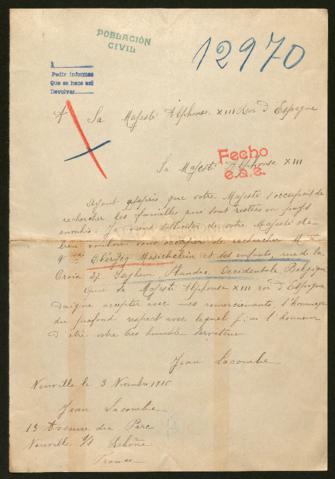 POBLACIÓN
CIVIL
12970
Pedir informes
Que se hace así
Devolver
A Sa Majesté Alphonse XIII Roi d'Espagne
Fecho
e.a.a.
Sa Majesté Alphonse XIII
Ayant appris que votre Majesté s'occupait de
rechercher les familles qui sont restées en pays
envahis. Je viens solliciter de votre Majesté de
bien vouloir de rechercher
et ses enfants, rue de la
Croix 27 Flandre Occidentale Belgique
Que sa Majesté Alphonse XIII roi d'Espagne
daigne accepter avec mes remerciements, l'hommage
du profond respect avec lequel j'ai l'honneur
d'être votre très humble serviteur
Jean Lacombe
Neuville le 3 Novembre 1915
Jean Lacombe
13 Avenue du Parc
Neuville s/
France